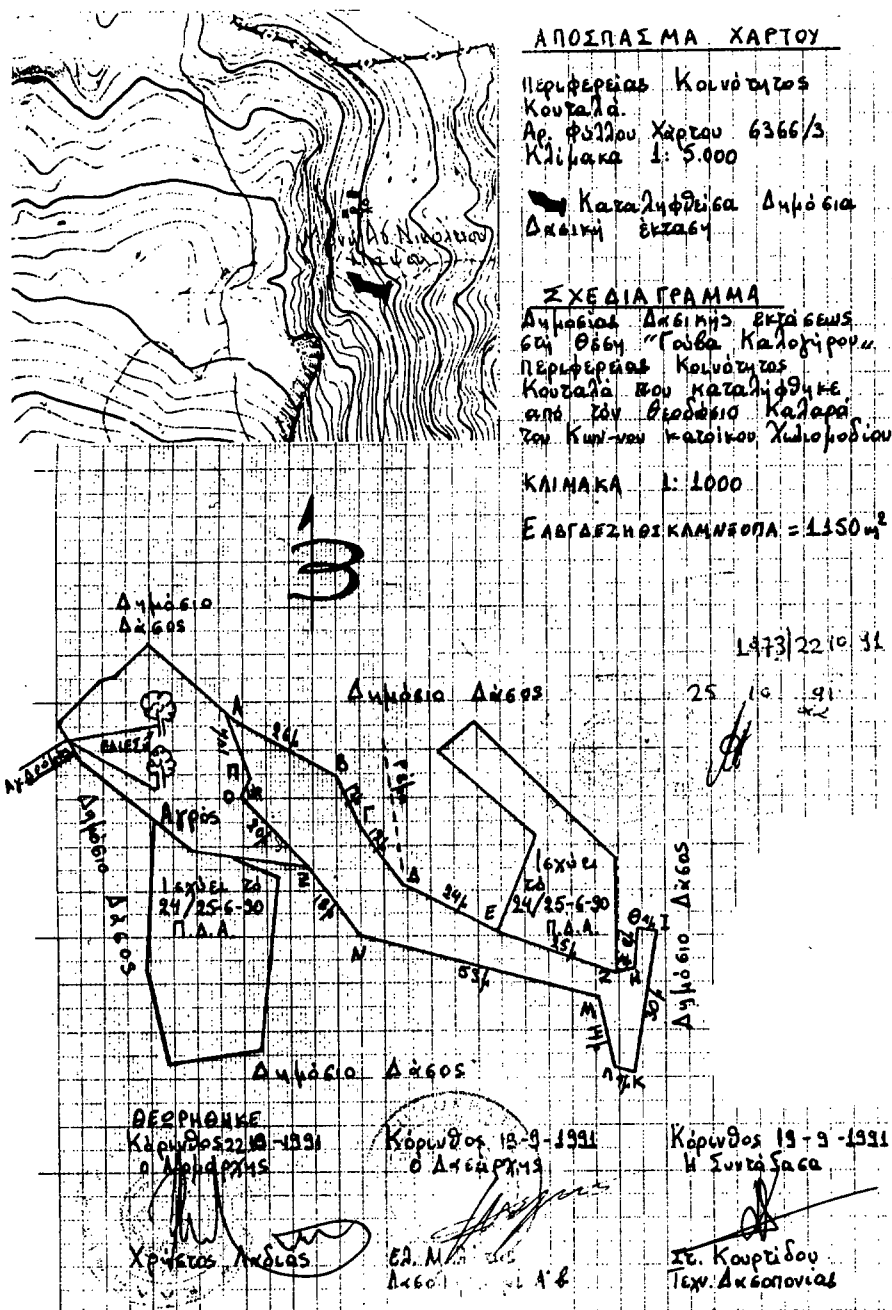 ΑΠΟΣΠΑΣΜΑ ΧΑΡΤΟΥ
Περιφερείας Κοινότητος
Κουταλά.
Αρ. Φύλλου Χάρτου 6366/3
Κλίμακα 1: 5.000
Καταληφθείσα Δημόσια
Δασική έκταση
ΣΧΕΔΙΑΓΡΑΜΜΑ
Δημοσίας Δασικής εκτάσεως
στη θέση "Γούβα Καλογήρου"
περιφερείας Κοινότητος
Κουταλά που καταλήφθηκε
από τον Θεοδόσιο Καλαρά
του Κων-νου κατοίκου Χιλιομοδίου
ΚΛΙΜΑΚΑ 1: 1000
Ε ΑΒΓΔΕΖΗΘΙΚΛΜΝΞΟΠΑ = 1150 m²
Β
Δημόσιο
Δάσος
1973/22 10 91
25 10 91
Δημόσιο Δάσος
Α
26μ
Β
Π
Ο
Ρέμα
Αγ. Δρόμος
Αγρός
Γ
Δ
24μ
Ε
25μ
Ζ
Η
Θ
Ι
30μ
Κ
Λ
Μ
53μ
Ν
18μ
20μ
Ισχύει το
24/25-6-90
Π.Δ.Α.
Ισχύει
το
24/25-6-90
Π.Δ.Α.
Δημόσιο Δάσος
Δημόσιο Δάσος
Δημόσιο Δάσος
ΘΕΩΡΗΘΗΚΕ
Κόρινθος 22-10-1991
Ο Δασάρχης
Χρήστος Λαδιάς
Κόρινθος 19-9-1991
Ο Δασάρχης
Ελ. Μ
Δασο Α' β
Κόρινθος 19-9-1991
Η Συντάξασα
Στ. Κουρτίδου
Τεχν. Δασοπονίας